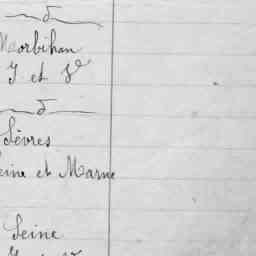 Morbihan
I et Ve
Sèvres
Seine et Marne
Seine